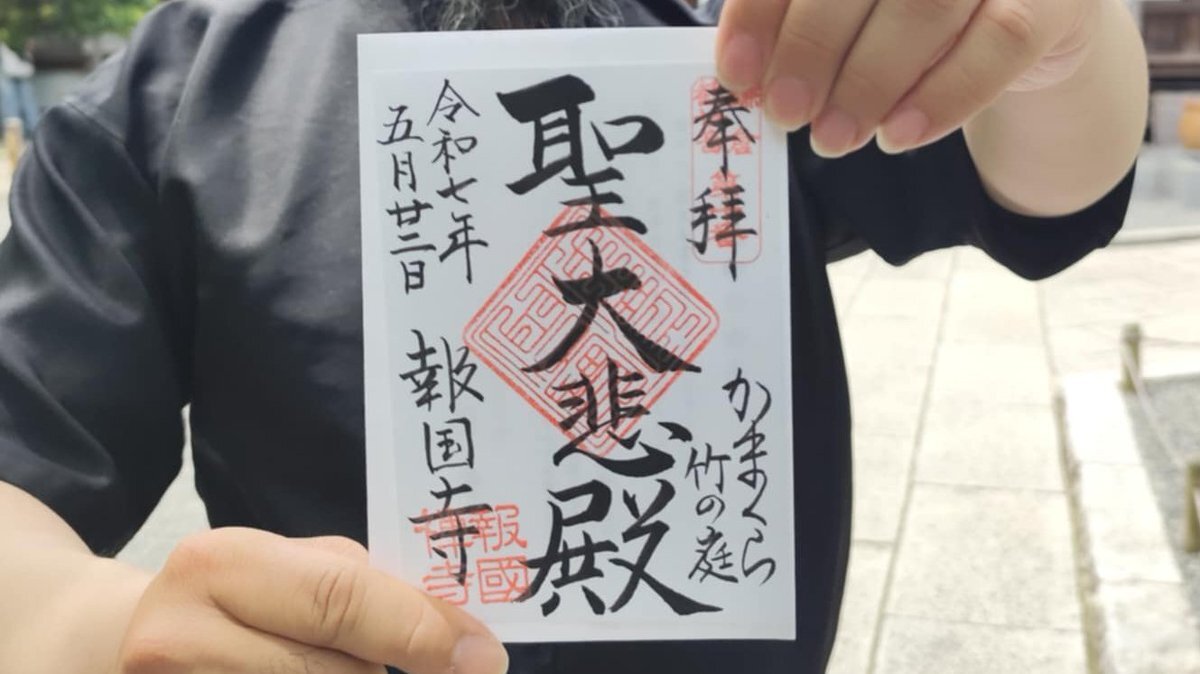 奉拝
かまくら
竹の庭
聖大悲殿
令和七年
五月廿二日
報国寺
報國
禅寺